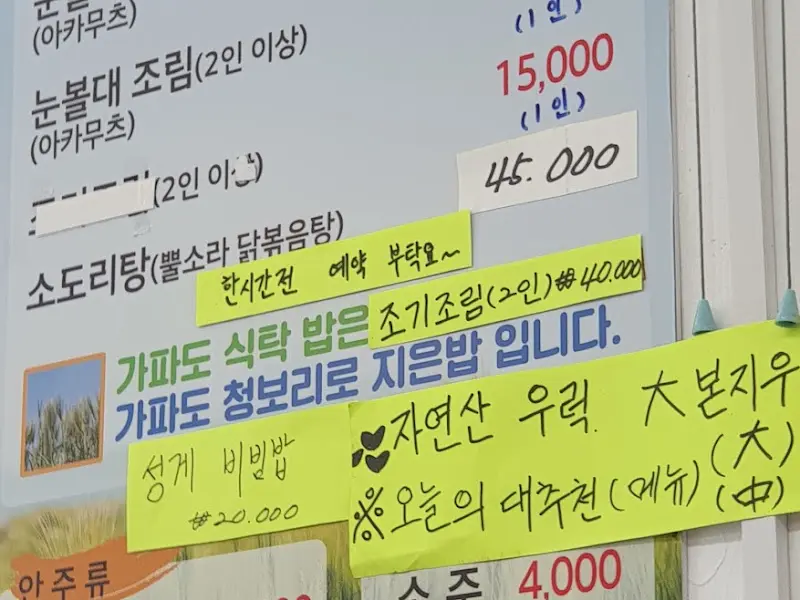 (아카무츠)
(1인)
눈볼대 조림(2인 이상)
15,000
(아카무츠)
(1인)
(2인 이상)
45.000
소도리탕(뿔소라 닭볶음탕)
한시간전 예약 부탁요~
조기조림(2인)₩40.000
가파도 식탁 밥은
가파도 청보리로 지은밥 입니다.
성게 비빔밥
₩20.000
자연산 우럭. 大 본지우
(大)
※오늘의 대추천(메뉴)(中)
안주류
소주 4,000